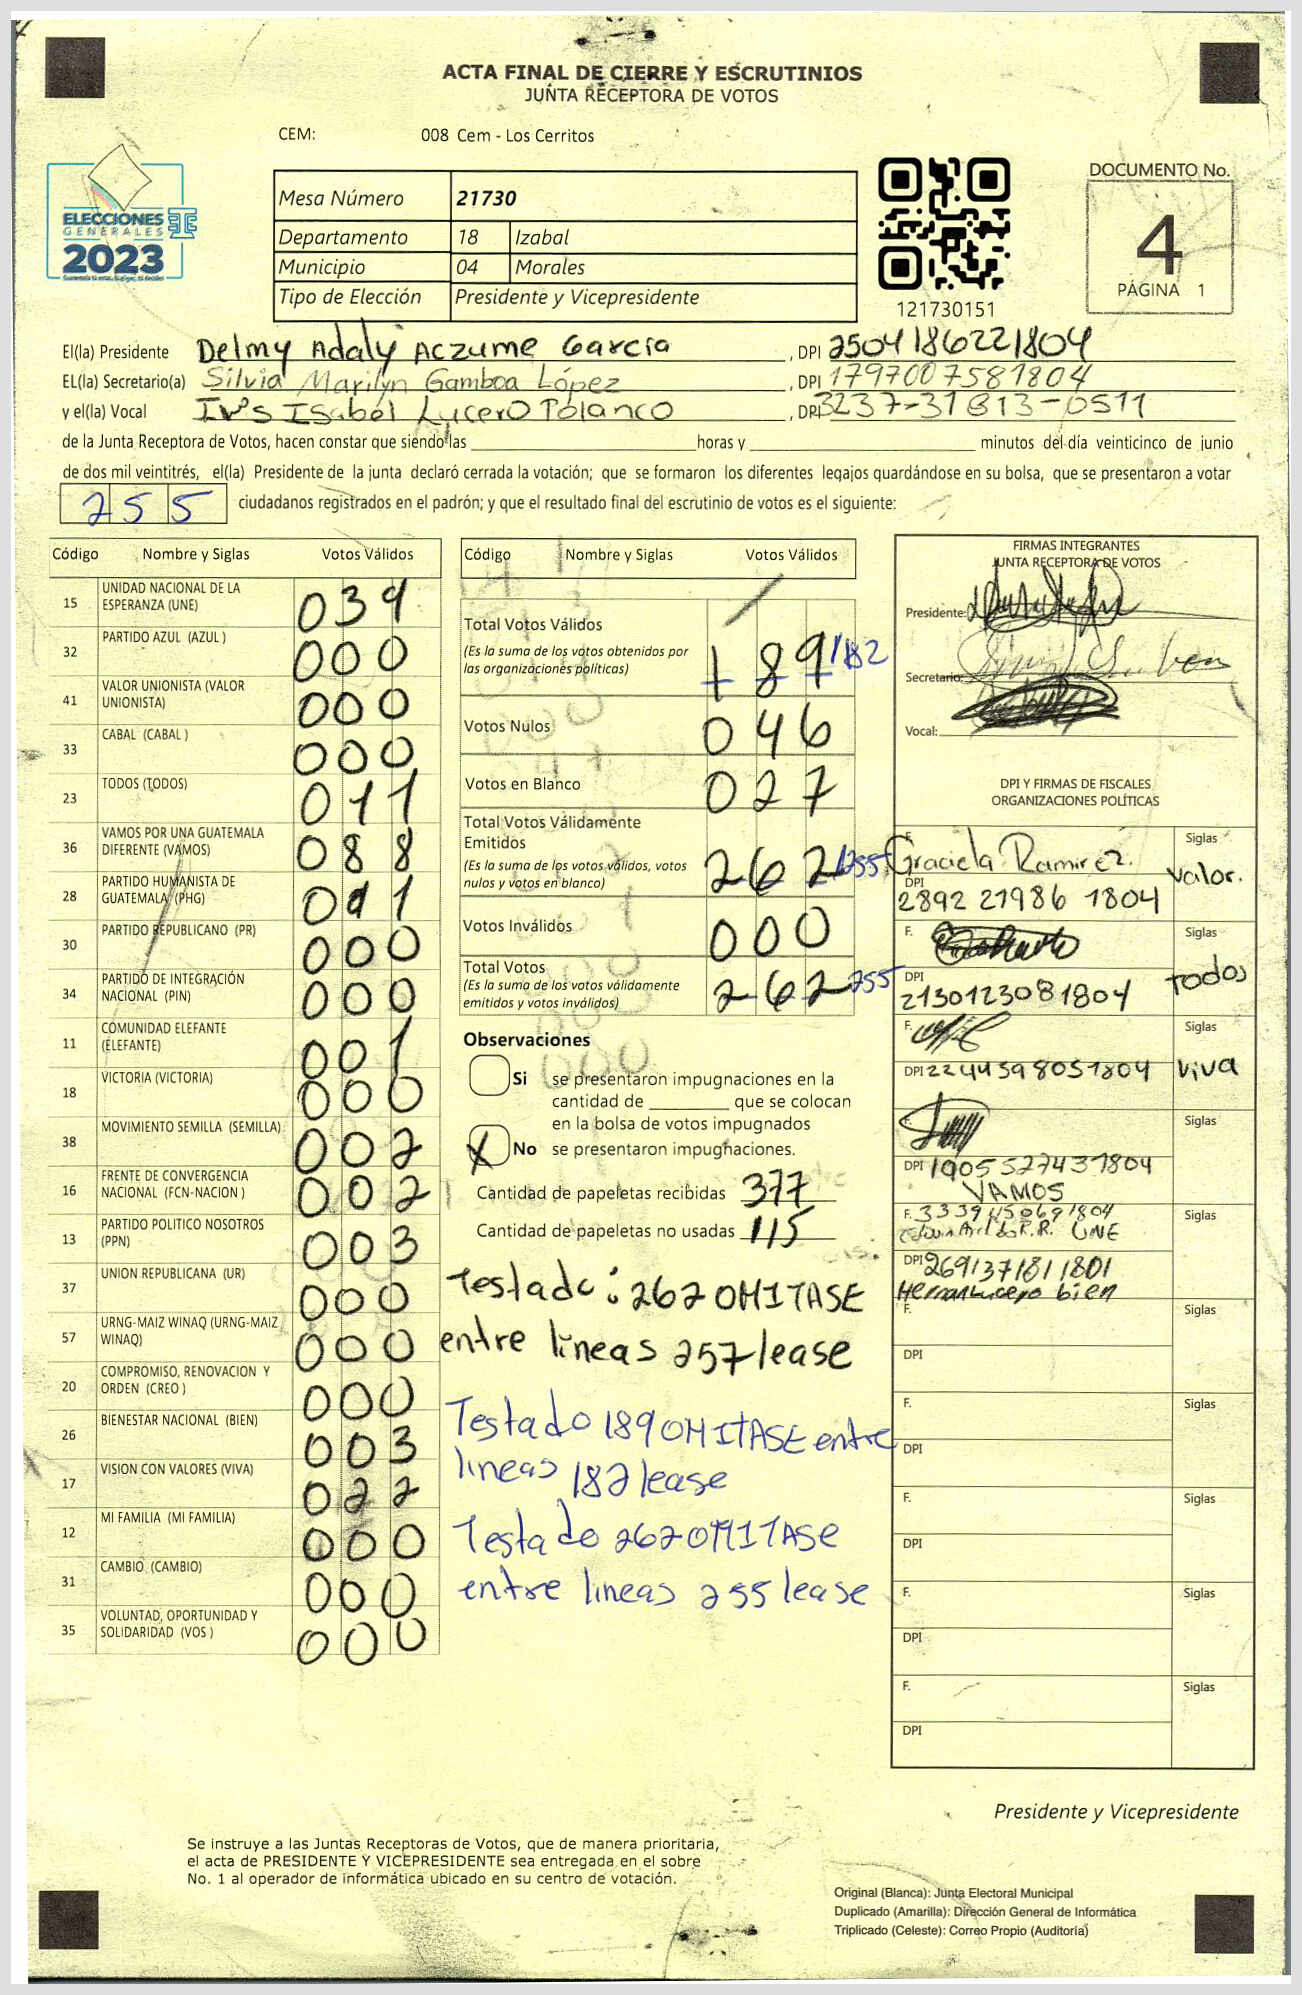 ACTA FINAL DE CIERRE Y ESCRUTINIOS
JUNTA RECEPTORA DE VOTOS
CEM: 008 Cem - Los Cerritos
ELECCIONES
GENERALES
2023
Mesa Número 21730
Departamento 18 Izabal
Municipio 04 Morales
Tipo de Elección Presidente y Vicepresidente
121730151
DOCUMENTO No.
4
PÁGINA 1
El(la) Presidente Delmy Adaly Aczume Garcia, DPI 2504186221804
EL(la) Secretario(a) Silvia Marilyn Gamboa López, DPI 1797007581804
y el(la) Vocal Isabel Lucero Polanco, DPI 3237-31813-0511
de la Junta Receptora de Votos, hacen constar que siendo las horas y minutos del día veinticinco de junio
de dos mil veintitrés, el(la) Presidente de la junta declaró cerrada la votación; que se formaron los diferentes legajos guardándose en su bolsa, que se presentaron a votar
255 ciudadanos registrados en el padrón; y que el resultado final del escrutinio de votos es el siguiente:
Código Nombre y Siglas Votos Válidos
15 UNIDAD NACIONAL DE LA ESPERANZA (UNE) 039
32 PARTIDO AZUL (AZUL ) 000
41 VALOR UNIONISTA (VALOR UNIONISTA) 000
33 CABAL (CABAL ) 000
23 TODOS (TODOS) 011
36 VAMOS POR UNA GUATEMALA DIFERENTE (VAMOS) 088
28 PARTIDO HUMANISTA DE GUATEMALA (PHG) 011
30 PARTIDO REPUBLICANO (PR) 000
34 PARTIDO DE INTEGRACIÓN NACIONAL (PIN) 000
11 COMUNIDAD ELEFANTE (ELEFANTE) 001
18 VICTORIA (VICTORIA) 000
38 MOVIMIENTO SEMILLA (SEMILLA) 002
16 FRENTE DE CONVERGENCIA NACIONAL (FCN-NACION ) 002
13 PARTIDO POLITICO NOSOTROS (PPN) 003
37 UNION REPUBLICANA (UR) 000
57 URNG-MAIZ WINAQ (URNG-MAIZ WINAQ) 000
20 COMPROMISO, RENOVACION Y ORDEN (CREO ) 000
26 BIENESTAR NACIONAL (BIEN) 003
17 VISION CON VALORES (VIVA) 022
12 MI FAMILIA (MI FAMILIA) 000
31 CAMBIO (CAMBIO) 000
35 VOLUNTAD, OPORTUNIDAD Y SOLIDARIDAD (VOS ) 000
Código Nombre y Siglas Votos Válidos
Total Votos Válidos 189 182
(Es la suma de los votos obtenidos por
las organizaciones políticas)
Votos Nulos 046
Votos en Blanco 027
Total Votos Válidamente
Emitidos 262 255
(Es la suma de los votos válidos, votos
nulos y votos en blanco)
Votos Inválidos 000
Total Votos 262 255
(Es la suma de los votos válidamente
emitidos y votos inválidos)
Observaciones
Si se presentaron impugnaciones en la
cantidad de que se colocan
en la bolsa de votos impugnados
X No se presentaron impugnaciones.
Cantidad de papeletas recibidas 377
Cantidad de papeletas no usadas 115
Testado: 262 OMITASE
entre líneas 257 lease
Testado 189 OMITASE entre
líneas 182 lease
Testado 262 OMITASE
entre líneas 255 lease
FIRMAS INTEGRANTES
JUNTA RECEPTORA DE VOTOS
Presidente:
Secretario:
Vocal:
DPI Y FIRMAS DE FISCALES
ORGANIZACIONES POLÍTICAS
F. Graciela Ramirez. Siglas
DPI 2892 21986 1804 Valor.
F. Siglas
DPI 2130123081804 Todos
F. Siglas
DPI 2244598051804 Viva
Siglas
DPI 1905527431804
VAMOS
F. 3339450691804 Siglas
R.R. UNE
DPI 2691371811801
Hernan Lucero bien
F. Siglas
DPI
F. Siglas
DPI
F. Siglas
DPI
F. Siglas
DPI
F. Siglas
DPI
Presidente y Vicepresidente
Se instruye a las Juntas Receptoras de Votos, que de manera prioritaria,
el acta de PRESIDENTE Y VICEPRESIDENTE sea entregada en el sobre
No. 1 al operador de informática ubicado en su centro de votación.
Original (Blanca): Junta Electoral Municipal
Duplicado (Amarilla): Dirección General de Informática
Triplicado (Celeste): Correo Propio (Auditoría)